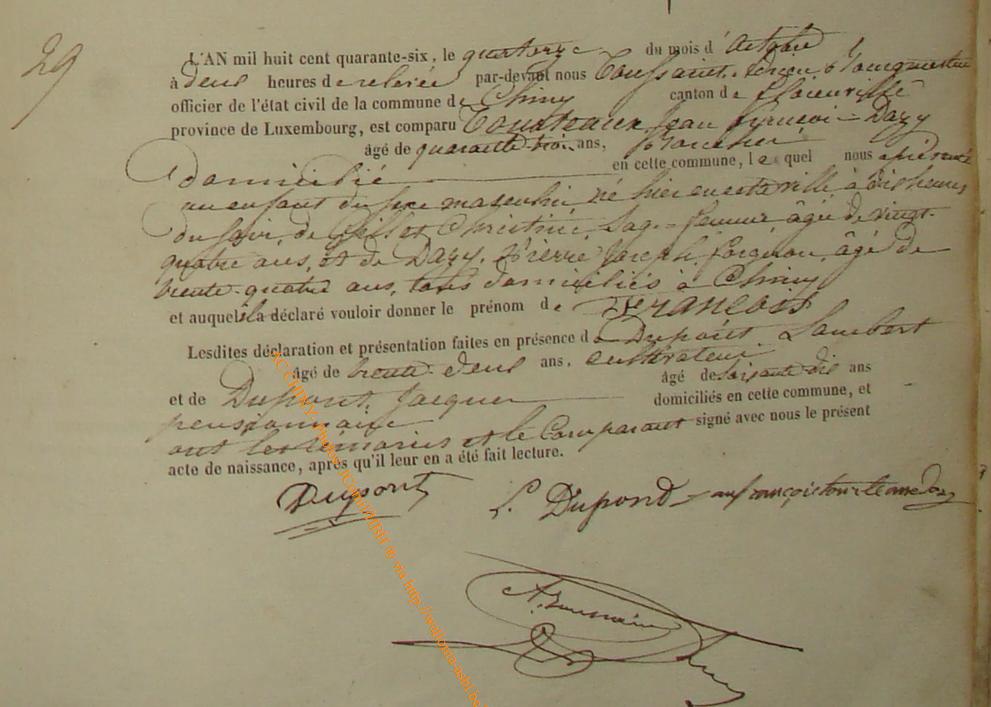 29
L'AN mil huit cent quarante-six, le quatorze du mois d' Octobre
à deux heures de relevée par-devant nous Toussaint, Adrien, bourgmestre
officier de l'état civil de la commune de Chiny canton de Florenville
province de Luxembourg, est comparu Tourteaux, Jean François - Dazy
âgé de quarante-trois ans,
domicilié en cette commune, le quel nous a présenté
un enfant du sexe masculin né hier en cette ville à dix heures
du soir, de Christine, Sage-femme, âgée de vingt-
quatre ans, et de Dazy, Pierre Joseph, forgeron, âgé de
trente-quatre ans, tous domiciliés à Chiny
et auquel il a déclaré vouloir donner le prénom de François
Lesdites déclaration et présentation faites en présence de Dupont, Lambert
âgé de trente-deux ans, cultivateur
et de Dupont, Jacques âgé de soixante dix ans
pensionnaire domiciliés en cette commune, et
ont les témoins et le Comparant signé avec nous le présent
acte de naissance, après qu'il leur en a été fait lecture.
Dupont L. Dupond
A. Toussaint